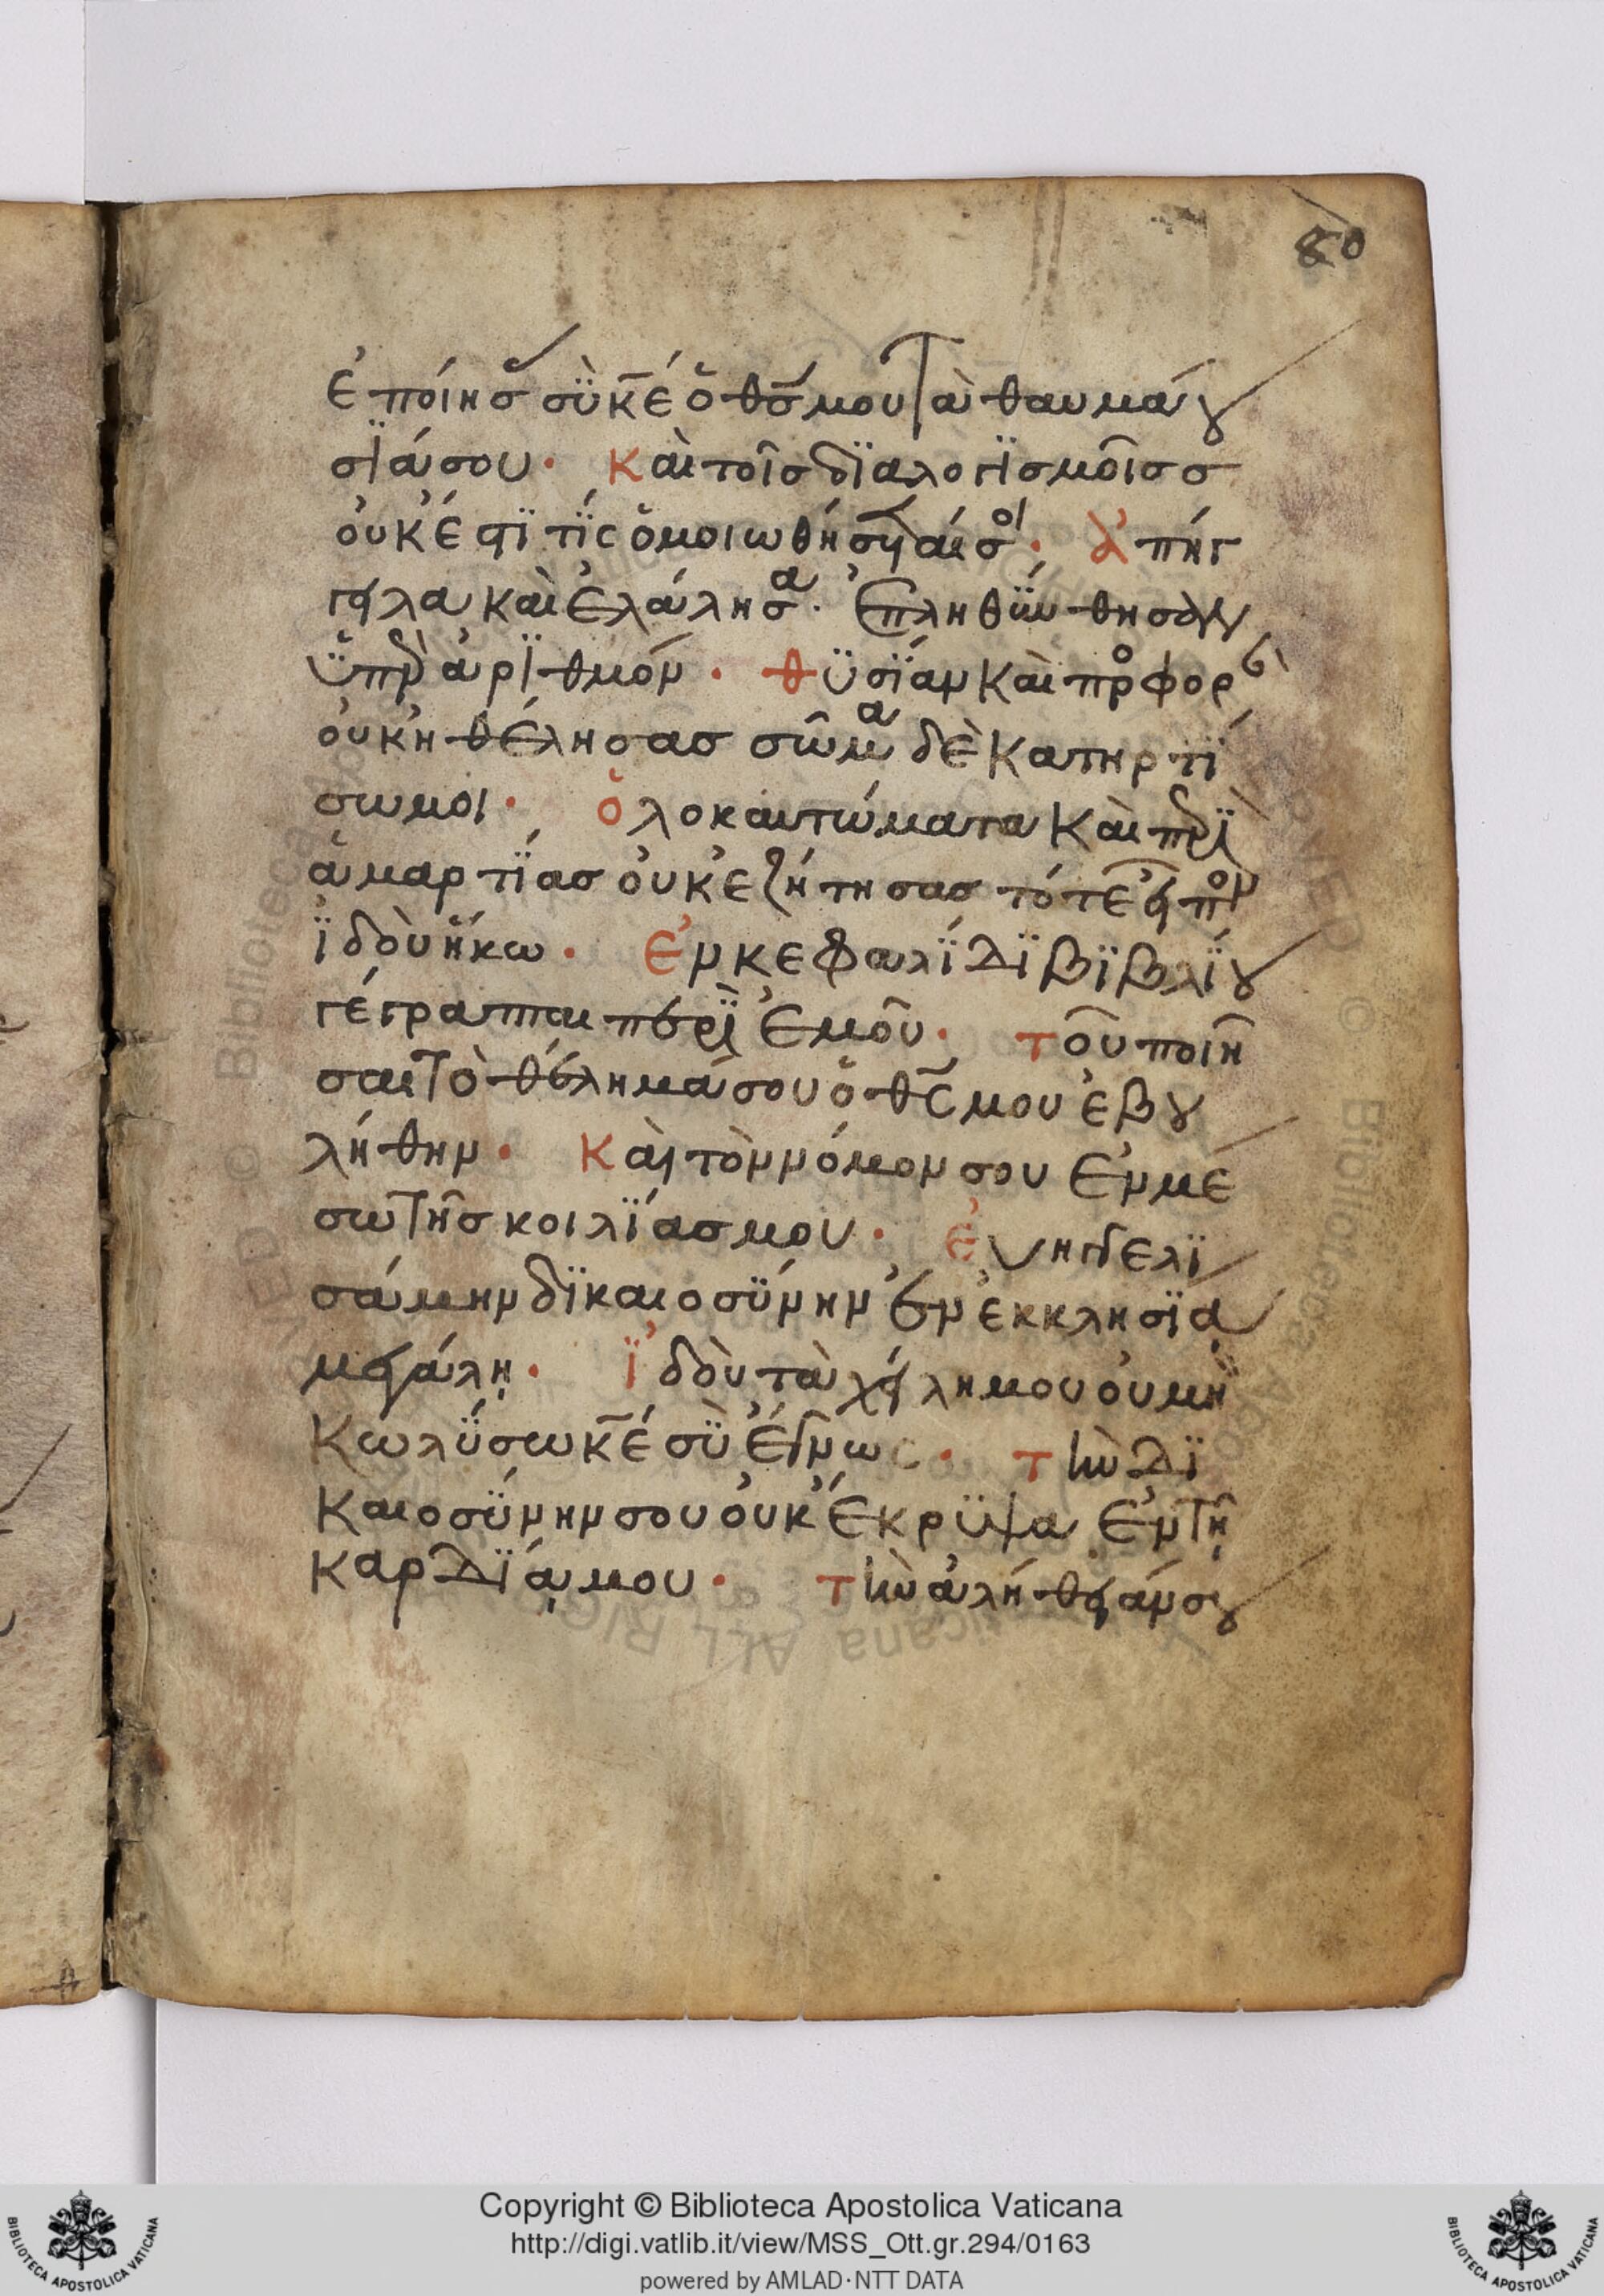 80
ἐποίησ σὺ κε ὁ θσ μου τὰ θαυμά
σϊά σου· καὶ τοῖσ διαλογϊσμοῖσ σ
οὐκ ἔστϊ τίς ὁμοιωθήσεταί σοι· ἀπήγ
γειλα καὶ ἐλάλησα· ἐπληθύνθησαν
ὑπὲρ ἀρϊθμόν· θϋσΐαν καὶ προσφορὰ
οὐκ ἠθέλησασ σῶμα δὲ κατηρτί
σω μοι· ὁλοκαυτώματα καὶ περὶ
ἁμαρτΐασ οὐκ ἐζήτησασ τότε εἶπον
ἰδοὺ ἥκω· ἐν κεφαλΐδϊ βϊβλΐου
γέγραπται περὶ ἐμοῦ· τοῦ ποιῆ
σαι τὸ θέλημά σου ὁ θς μου ἐβου
λήθην· καὶ τὸν νόμον σου ἐν μέ
σω τῆσ κοιλΐασ μου· εὐηγγελϊ
σάμην δϊκαιοσΰνην ἐν ἐκκλησΐᾳ
μεγάλῃ· ἰδοὺ τὰ χείλη μου οὐ μὴ
κωλΰσω κε σὺ ἔγνως· τὴν δϊ
καιοσΰνην σου οὐκ ἔκρϋψα ἐν τῇ
καρδΐᾳ μου· τὴν ἀλήθειάν σου
Copyright © Biblioteca Apostolica Vaticana
http://digi.vatlib.it/view/MSS_Ott.gr.294/0163
powered by AMLAD·NTT DATA
BIBLIOTECA APOSTOLICA VATICANA
BIBLIOTECA APOSTOLICA VATICANA